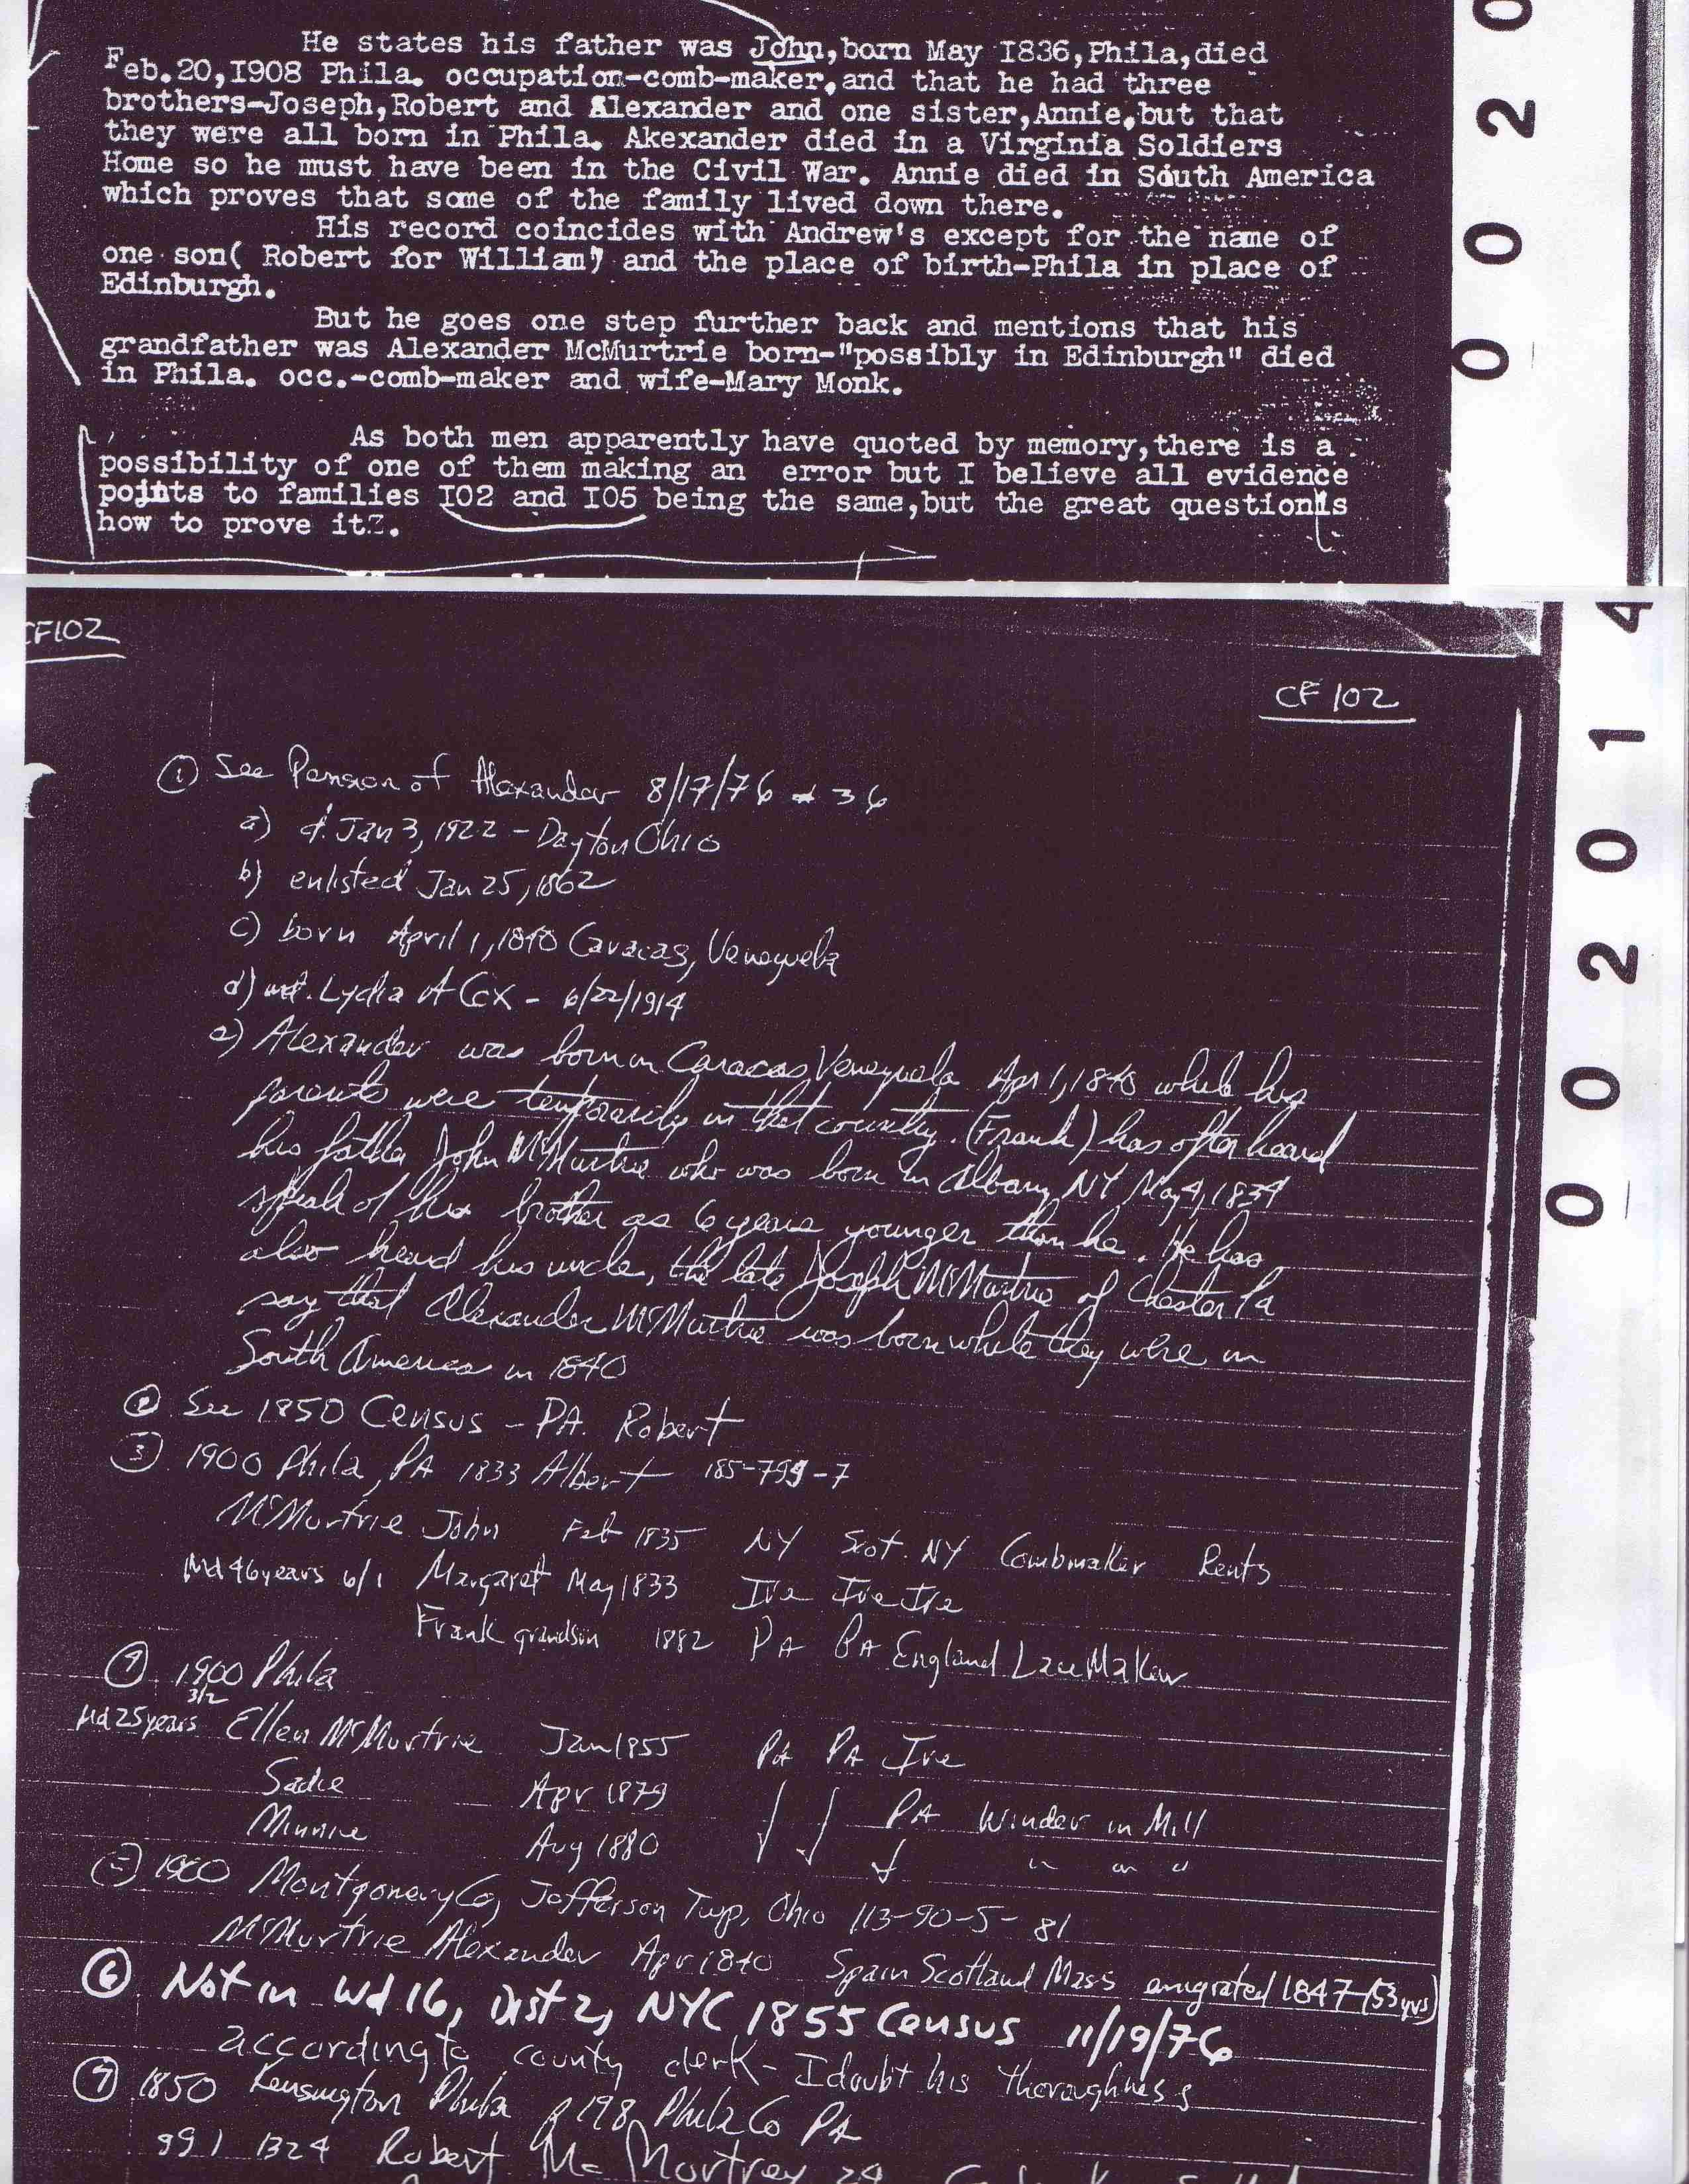 He states his father was John,born May I836,Phila,died
Feb.20,I908 Phila. occupation-comb-maker,and that he had three
brothers-Joseph,Robert and Alexander and one sister,Annie,but that
they were all born in Phila. Akexander died in a Virginia Soldiers
Home so he must have been in the Civil War. Annie died in South America
which proves that some of the family lived down there.
His record coincides with Andrew's except for the name of
one son( Robert for William) and the place of birth-Phila in place of
Edinburgh.
But he goes one step further back and mentions that his
grandfather was Alexander McMurtrie born-"possibly in Edinburgh" died
in Phila. occ.-comb-maker and wife-Mary Monk.
As both men apparently have quoted by memory,there is a
possibility of one of them making an error but I believe all evidence
points to families I02 and I05 being the same,but the great question is
how to prove it?.
0 0 2 0
CF102
CF 102
0 0 2 0 1 4
① See Pension of Alexander 8/17/76 36
a) d. Jan 3, 1922 - Dayton Ohio
b) enlisted Jan 25, 1862
c) born April 1, 1840 Caracas, Venezuela
d) md. Lydia A Cox - 6/22/1914
e) Alexander was born in Caracas, Venezuela Apr 1, 1840 while his
parents were temporarily in that country. (Frank) has often heard
his father John McMurtrie who was born in Albany, NY May 4, 1834
speak of his brother as 6 years younger than he. He has
also heard his uncle, the late Joseph McMurtrie of Chester Pa
say that Alexander McMurtrie was born while they were in
South America in 1840
② See 1850 Census - PA. Robert
③ 1900 Phila, PA 1833 Albert 185-799-7
McMurtrie John Feb 1835 NY Scot. NY Combmaker Rents
Md 46 years 6/1 Margaret May 1833 Ire Ire Ire
Frank grandson 1882 PA PA England Lace Maker
④ 1900 Phila
3/2
Md 25 years Ellen McMurtrie Jan 1855 PA PA Ire
Sadie Apr 1879 PA Winder in Mill
Minnie Aug 1880 " " "
⑤ 1900 Montgomery Co, Jefferson Twp, Ohio 113-90-5-81
McMurtrie Alexander Apr 1840 Spain Scotland Mass emigrated 1847 (53 yrs)
⑥ Not in Wd 16, Dist 2, NYC 1855 Census 11/19/76
according to county clerk - I doubt his thoroughness
⑦ 1850 Kensington Phila p 198 Phila Co PA
991 1324 Robert McMurtrey 24